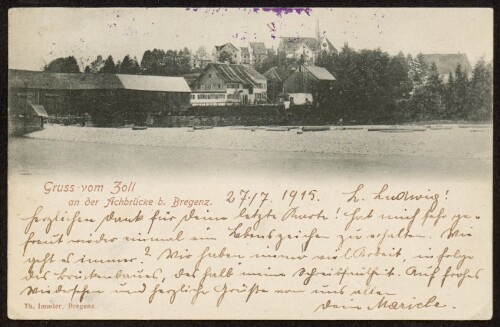 Gruss vom Zoll
an der Achbrücke b. Bregenz.
27./7. 1915. L. Ludwig!
herzlichen Dank für deine letzte Karte! Hat mich sehr ge-
freut wieder einmal ein Lebenszeichen zu erhalten. Wie
geht es immer? Wir haben immer viel Arbeit, infolge
des Brückenbaues, deshalb meine Schreibfaulheit. Auf frohes
Wiedersehen und herzliche Grüße von uns allen
dein Mariele.
Th. Immler, Bregenz.